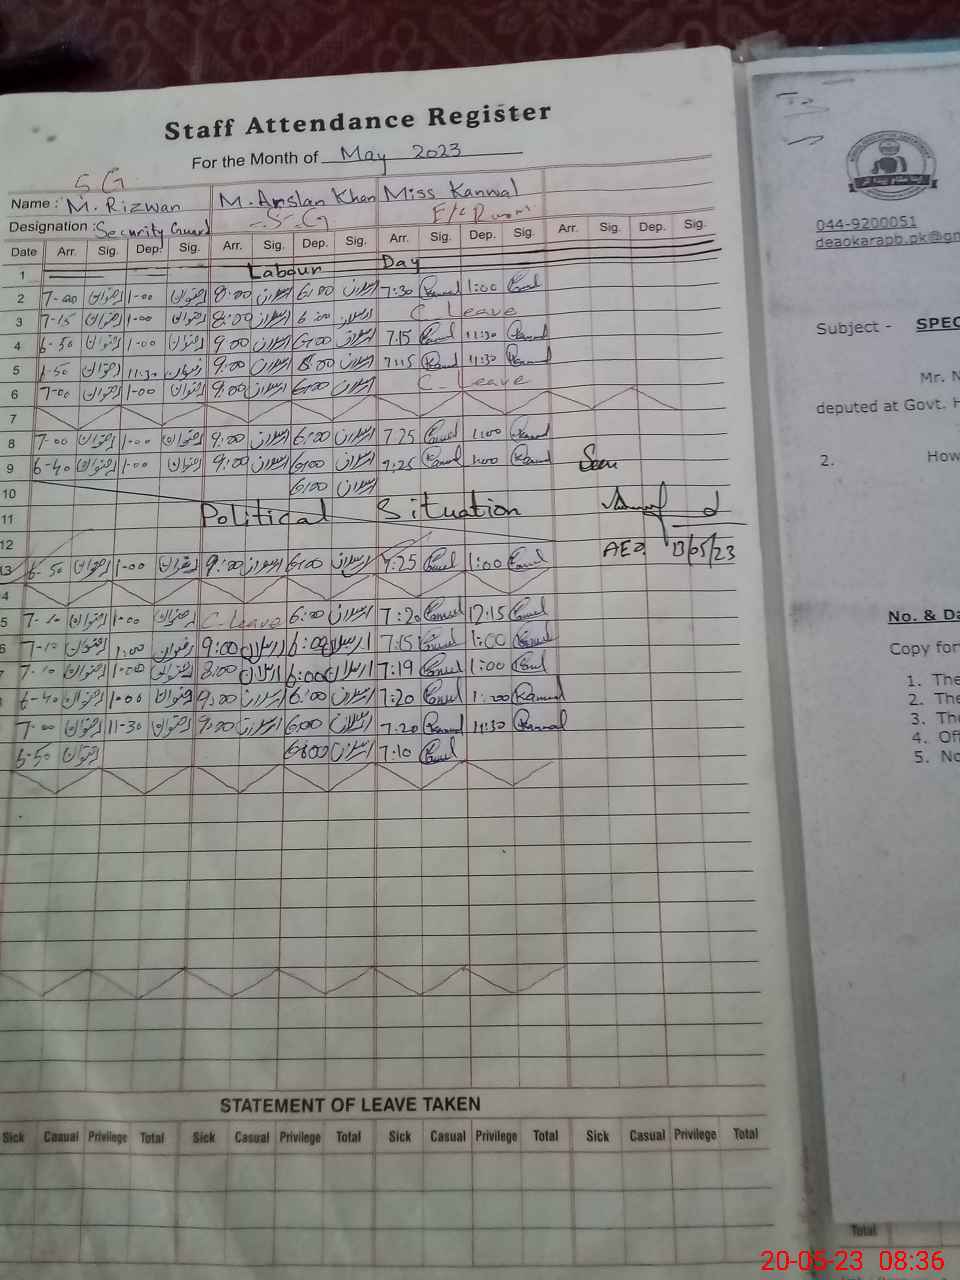 Staff Attendance Register
For the Month of May 2023
S G
Name : M. Rizwan M. Arslan Khan Miss Kanwal
Designation : Security Guard S-G
Date Arr. Sig. Dep. Sig. Arr. Sig. Dep. Sig. Arr. Sig. Dep. Sig. Arr. Sig. Dep. Sig.
1 Labour Day
2 7-00 رضوان 1-00 رضوان 8:00 ارسلان 6:00 ارسلان 7:30 Kanwal 1:00 Kanwal
3 7-15 رضوان 1-00 رضوان 8:00 ارسلان 6:00 ارسلان C. Leave
4 6-50 رضوان 1-00 رضوان 9:00 ارسلان 6:00 ارسلان 7:15 Kanwal 11:30 Kanwal
5 6-50 رضوان 11:30 رضوان 9:00 ارسلان 6:00 ارسلان 7:15 Kanwal 11:30 Kanwal
6 7-00 رضوان 1-00 رضوان 9:00 ارسلان 6:00 ارسلان C. Leave
7
8 7-00 رضوان 1-00 رضوان 9:00 ارسلان 6:00 ارسلان 7:25 Kanwal 1:00 Kanwal
9 6-40 رضوان 1-00 رضوان 9:00 ارسلان 6:00 ارسلان 7:25 Kanwal 1:00 Kanwal Seen
10 6:00 ارسلان
11 Political Situation
12 AEO 13/05/23
13 6-50 رضوان 1-00 رضوان 9:00 ارسلان 6:00 ارسلان 7:25 Kanwal 1:00 Kanwal
4
5 7-10 رضوان 1-00 رضوان C-Leave 6:00 ارسلان 7:20 Kanwal 12:15 Kanwal
6 7-10 رضوان 1:00 رضوان 9:00 ارسلان 6:00 ارسلان 7:15 Kanwal 1:00 Kanwal
7-10 رضوان 1-00 رضوان 8:00 ارسلان 6:00 ارسلان 7:19 Kanwal 1:00 Kanwal
6-40 رضوان 1-00 رضوان 9:00 ارسلان 6:00 ارسلان 7:20 Kanwal 1:00 Kanwal
7-00 رضوان 11-30 رضوان 9:00 ارسلان 6:00 ارسلان 7:20 Kanwal 11:30 Kanwal
6-50 رضوان 6:00 ارسلان 7:10 Kanwal
STATEMENT OF LEAVE TAKEN
Sick Casual Privilege Total Sick Casual Privilege Total Sick Casual Privilege Total Sick Casual Privilege Total
044-9200051
deaokarapb.pk@gm
Subject - SPEC
Mr. N
deputed at Govt. H
2. How
No. & Da
Copy for
1. The
2. The
3. The
4. Off
5. No
Total
20-05-23 08:36